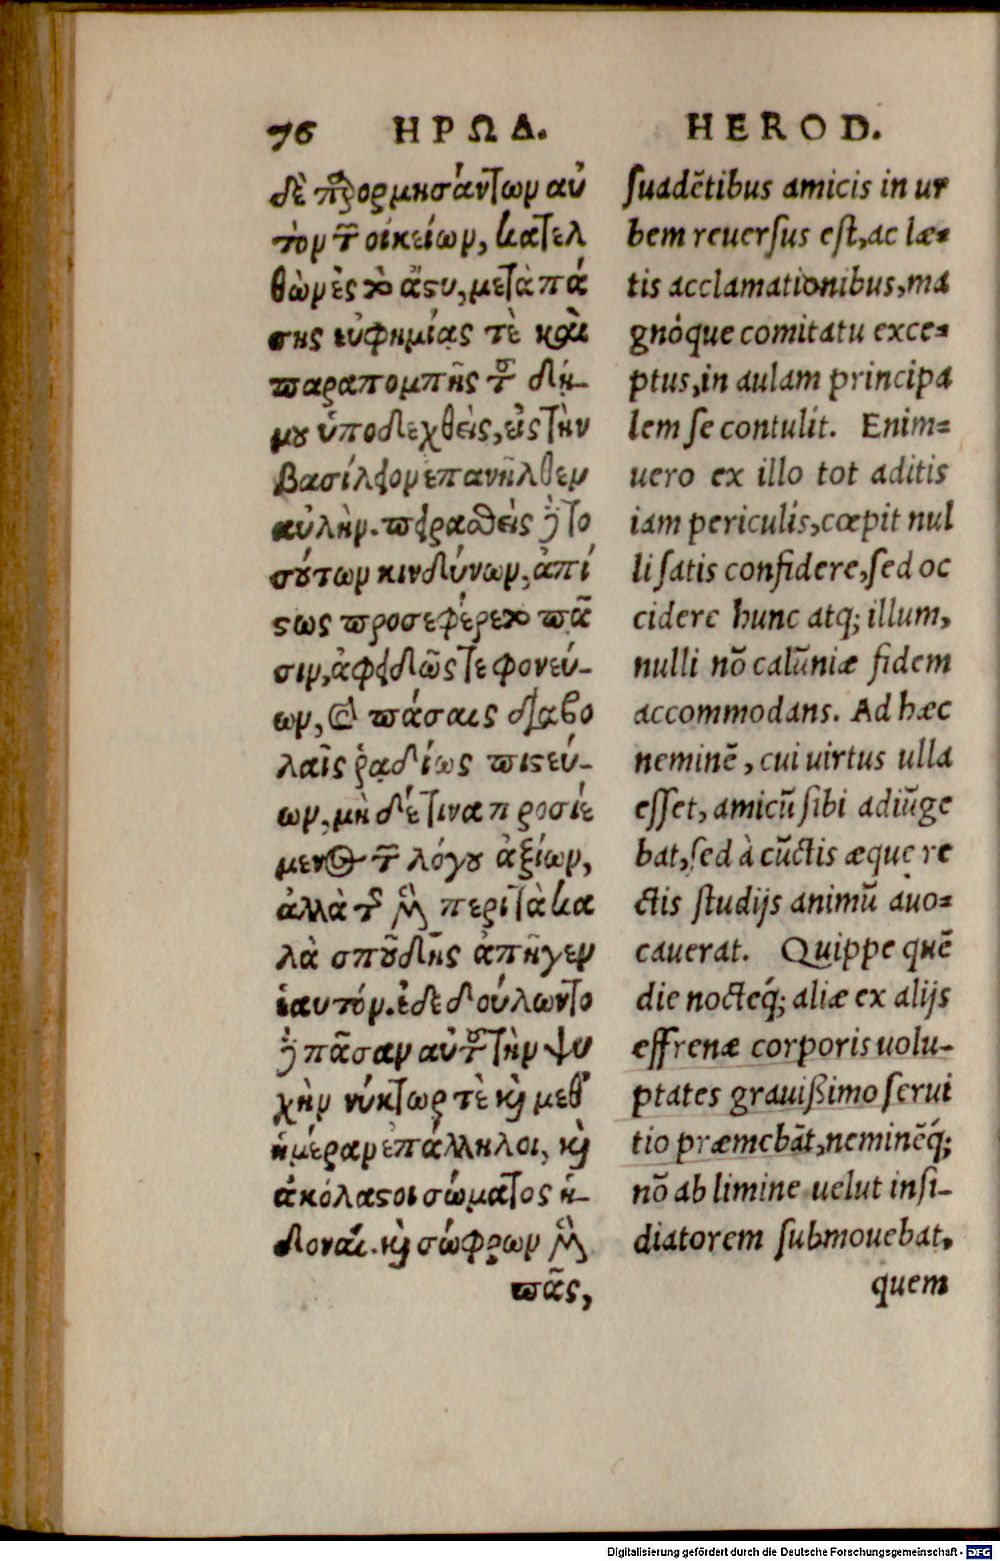 76 ΗΡΩΔ.
δὲ παρορμησάντων αὐ
τὸν τῶν οἰκείων, κατελ
θὼν ἐς τὸ ἄστυ, μετὰ πά
σης εὐφημίας τὲ καὶ
παραπομπῆς τοῦ δή-
μου ὑποδεχθεὶς, εἰς τὴν
βασίλειον ἐπανῆλθεν
αὐλὴν. πειραθεὶς δὲ το
σούτων κινδύνων, ἀπί
στως προσεφέρετο πᾶ
σιν, ἀφειδῶς τε φονεύ-
ων, καὶ πάσαις διαβο
λαῖς ῥᾳδίως πιστεύ-
ων, μὴ δέ τινα προσιέ
μενος τῶν λόγου ἀξίων,
ἀλλὰ τῆς μὲν περὶ τὰ κα
λὰ σπουδῆς ἀπῆγεν
ἑαυτόν. ἐδεδούλωντο
δὲ πᾶσαν αὐτοῦ τὴν ψυ
χὴν νύκτωρ τὲ καὶ μεθ'
ἡμέραν ἐπάλληλοι, καὶ
ἀκόλαστοι σώματος ἡ-
δοναί. καὶ σώφρων μὲν
πᾶς,
HEROD.
ſuadẽtibus amicis in ur
bem reuerſus eſt, ac læ=
tis acclamationibus, ma
gnóque comitatu exce=
ptus, in aulam principa
lem ſe contulit. Enim=
uero ex illo tot aditis
iam periculis, cœpit nul
li ſatis confidere, ſed oc
cidere hunc atq; illum,
nulli nõ calũniæ fidem
accommodans. Ad hæc
neminẽ, cui uirtus ulla
eſſet, amicũ ſibi adiũge
bat, ſed à cũctis æque re
ctis ſtudijs animũ auo=
cauerat. Quippe quẽ
die nocteq́; aliæ ex alijs
effrenæ corporis uolu-
ptates grauißimo ſerui
tio præmebãt, neminẽq́;
nõ ab limine uelut inſi-
diatorem ſubmouebat,
quem
Digitalisierung gefördert durch die Deutsche Forschungsgemeinschaft - DFG